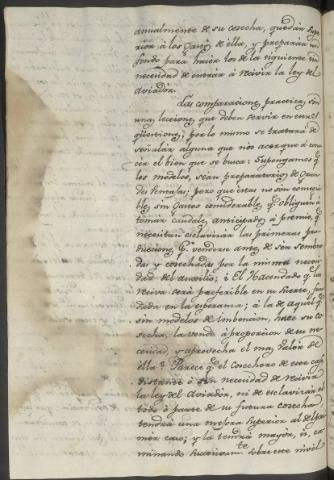 anualmente de su cosecha, quedar supe
rior à los gastos de ella, y preparar un
fondo para hacer los de la siguiente sin
necesidad de entrar à recivir la ley del
Aviador.
Las comparaciones practicas, son
unas lecciones, que deben servir en estas
qüestiones; por lo mismo se tratará de
señalar alguna que nos acerque à cono
cer el bien que se busca: Supongamos q.e
los medios, sean preparatorios de gran
des ventajas; pero que estas no son compati
bles, sin gastos considerables, q.e obliguen à
tomar caudales anticipados à premio, q.e
necesitan esclavizar las primeras pro
ducciones, q.e venderse antes de ser sembra
das y cosechadas por la misma necesi
dad del auxilio; i El Hacendado q.e la
reciva será preferible en su suerte, fun
dada en la esperanza; à la de aquel q.e
sin medios de imbencion, hace su co
secha, la vende à proporcion de su ne
cecidad, y aprovecha el mas valor de
ella? Parece q.e el Cosechero de este caso
distante ò sin necesidad de recivir
la ley del Aviador, ni de esclavizar el
todo ò parte de su futura cosecha
tendrá una mejora superior al del pri
mer caso; y la tendrá mayor, si, ca
minando sobre este